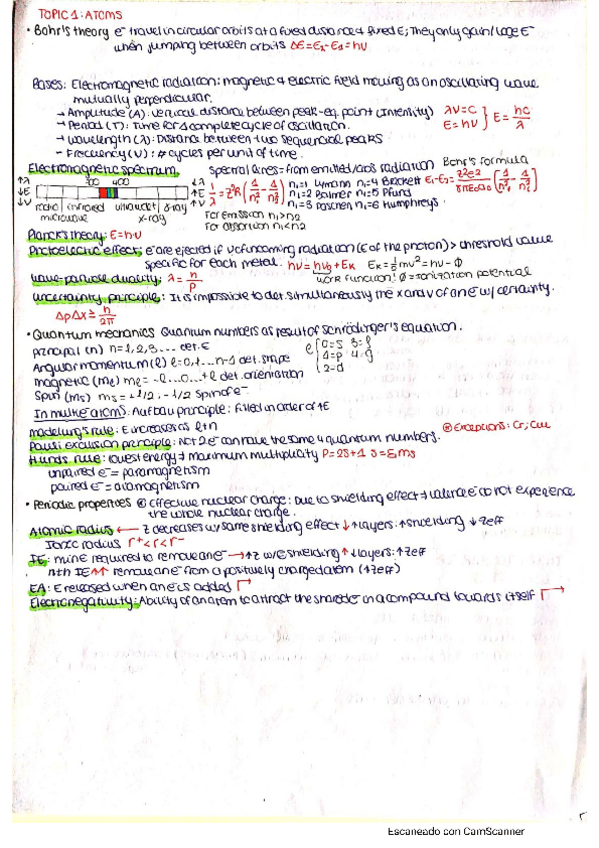 TOPIC 1: ATOMS
• Bohr's theory e⁻ travel in circular orbits at a fixed distance & fixed E; They only gain/lose E⁻
when jumping between orbits ΔE=E₂-E₁=hν
Bases: Electromagnetic radiation: magnetic & electric field moving as an oscillating wave
mutually perpendicular.
→ Amplitude (A): vertical distance between peak-eq. point (Intensity) λν=C
→ Period (T): Time for 1 complete cycle of oscillation. E=hν } E=hC/λ
→ wavelength (λ): Distance between two sequential peaks
→ Frequency (ν): # cycles per unit of time.
Electromagnetic spectrum, Spectral lines → from emitted/abs radiation Bohr's formula
↑λ 400 ↓λ 1/λ=Z²R(1/n₁²-1/n₂²) n₁=1 Lymann n₁=4 Brackett
↓E ↑E n₁=2 Balmer n₁=5 Pfund
↓ν radio infrared ultraviolet γ-ray ↑ν n₁=3 Paschen n₁=6 Humphreys
microwave x-ray For emission n₁>n₂
For absortion n₁<n₂
Planck's theory: E=h·ν
Photoelectric effect: e⁻ are ejected if ν of incoming radiation (E of the photon) > threshold value
specific for each metal. hν=hν₀+Eₖ Eₖ=½mv²=hν-Φ
work function! Φ=ionization potential
wave-particle duality: λ=h/p
uncertainty principle: It is impossible to det. simultaneously the x and v of an e⁻ w/ certainty.
ΔpΔx≥h/2π
• Quantum mechanics Quantum numbers as result of schrödinger's equation.
principal (n) n=1,2,3... det. E
Angular momentum (l) l=0,1...n-1 det. shape l { 0=s 3=f
magnetic (mₗ) mₗ=-l...0...+l det. orientation 1=p 4=g
Spin (mₛ) mₛ=+1/2;-1/2 Spin of e⁻ 2=d
In multi e⁻ atoms: Aufbau principle: filled in order of ↑E
madelung's rule: E increases as l+n
Pauli exclusion principle: NOT 2 e⁻ can have the same 4 quantum numbers. Exceptions: Cr, Cu
Hund's rule: lowest energy → maximum multiplicity P=2S+1 S=Σms
unpaired e⁻ = paramagnetism
paired e⁻ = diamagnetism
• Periodic properties Effective nuclear charge: Due to shielding effect → valence e⁻ do not experience
the whole nuclear charge.
Atomic radius ← Z decreases w/ same shielding effect ↓ ↑layers: ↑shielding ↓Zeff
Ionic radius r⁺<r<r⁻
IE: min E required to remove an e⁻ → ↑Z w/ shielding ↑ ↓layers: ↑Zeff
nth IE↑↑ remove an e⁻ from a positively charged atom (↑Zeff)
EA: E released when an e⁻ is added
Electronegativity: Ability of an atom to attract the shared e⁻ in a compound towards itself
Escaneado con CamScanner